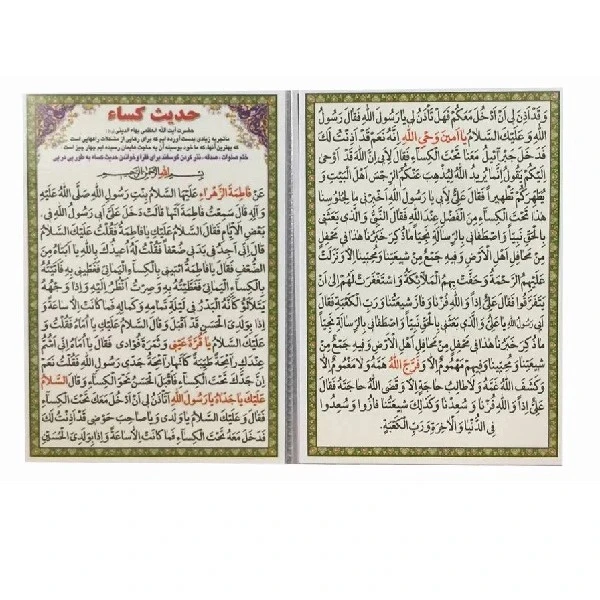 حدیث کساء
حضرت آیت الله العظمی بهاء الدینی (ره)
ما تجربه زیادی بدست آورده ایم که برای رهایی از مشکلات راههایی است
که بهترین آنها، که ما خود بوسیله آن به حاجت هایمان رسیده ایم چهار چیز است
ختم صلوات ، صدقه، نذر کردن گوسفند برای فقرا و خواندن حدیث کساء به طور پی در پی
بسم الله الرحمن الرحیم
عَنْ فاطِمَةَ الزَّهْراءِ عَلَیْهَا السَّلامُ بِنْتِ رَسُولِ اللهِ صَلَّی اللهُ عَلَیْهِ
وَ آلِهِ قالَ سَمِعْتُ فاطِمَةَ أَنَّها قالَتْ دَخَلَ عَلَیَّ أَبی رَسُولُ اللهِ فی
بَعْضِ الْأَیّامِ فَقالَ السَّلامُ عَلَیْکِ یا فاطِمَةُ فَقُلْتُ عَلَیْکَ السَّلامُ
قالَ إِنّی أَجِدُ فی بَدَنی ضُعْفاً فَقُلْتُ لَهُ أُعیذُکَ بِاللهِ یا أَبَتاهُ مِنَ
الضُّعْفِ فَقالَ یا فاطِمَةُ ائْتینی بِالْکِساءِ الْیَمانی فَغَطّینی بِهِ فَأَتَیْتُهُ
بِالْکِساءِ الْیَمانی فَغَطَّیْتُهُ بِهِ وَ صِرْتُ أَنْظُرُ إِلَیْهِ وَ إِذا وَجْهُهُ
یَتَلَأْلَؤُ کَأَنَّهُ الْبَدْرُ فی لَیْلَةِ تَمامِهِ وَ کَمالِهِ فَما کانَتْ إِلّا ساعَةً وَ
إِذا بِوَلَدِیَ الْحَسَنِ قَدْ أَقْبَلَ وَ قالَ السَّلامُ عَلَیْکِ یا أُمّاهُ فَقُلْتُ وَ
عَلَیْکَ السَّلامُ یا قُرَّةَ عَیْنی وَ ثَمَرَةَ فُؤادی فَقالَ یا أُمّاهُ إِنّی أَشَمُّ
عِنْدَکِ رائِحَةً طَیِّبَةً کَأَنَّها رائِحَةُ جَدّی رَسُولِ اللهِ فَقُلْتُ نَعَمْ
إِنَّ جَدَّکَ تَحْتَ الْکِساءِ فَأَقْبَلَ الْحَسَنُ نَحْوَ الْکِساءِ وَ قالَ السَّلامُ
عَلَیْکَ یا جَدّاهُ یا رَسُولَ اللهِ أَتَأْذَنُ لی أَنْ أَدْخُلَ مَعَکَ تَحْتَ الْکِساءِ
فَقالَ وَ عَلَیْکَ السَّلامُ یا وَلَدی وَ یا صاحِبَ حَوْضی قَدْ أَذِنْتُ لَکَ
فَدَخَلَ مَعَهُ تَحْتَ الْکِساءِ فَما کانَتْ إِلّا ساعَةً وَ إِذا بِوَلَدِیَ الْحُسَیْنِ
وَ قَدْ أَذِنَ لی أَنْ أَدْخُلَ مَعَکُمْ فَهَلْ تَأْذَنُ لی یا رَسُولَ اللهِ فَقالَ رَسُولُ
اللهِ وَ عَلَیْکَ السَّلامُ یا أَمینَ وَحْیِ اللهِ إِنَّهُ نَعَمْ قَدْ أَذِنْتُ لَکَ
فَدَخَلَ جَبْرائیلُ مَعَنا تَحْتَ الْکِساءِ فَقالَ لِأَبی إِنَّ اللهَ قَدْ أَوْحی
إِلَیْکُمْ یَقُولُ إِنَّما یُریدُ اللهُ لِیُذْهِبَ عَنْکُمُ الرِّجْسَ أَهْلَ الْبَیْتِ وَ
یُطَهِّرَکُمْ تَطْهیراً فَقالَ عَلِیٌّ لِأَبی یا رَسُولَ اللهِ أَخْبِرْنی ما لِجُلُوسِنا
هذا تَحْتَ الْکِساءِ مِنَ الْفَضْلِ عِنْدَ اللهِ فَقالَ النَّبِیُّ وَ الَّذی بَعَثَنی
بِالْحَقِّ نَبِیّاً وَ اصْطَفانی بِالرِّسالَةِ نَجِیّاً ما ذُکِرَ خَبَرُنا هذا فی مَحْفِلٍ
مِنْ مَحافِلِ أَهْلِ الْأَرْضِ وَ فیهِ جَمْعٌ مِنْ شیعَتِنا وَ مُحِبّینا إِلّا وَ نَزَلَتْ
عَلَیْهِمُ الرَّحْمَةُ وَ حَفَّتْ بِهِمُ الْمَلائِکَةُ وَ اسْتَغْفَرَتْ لَهُمْ إِلی أَنْ
یَتَفَرَّقُوا فَقالَ عَلِیٌّ إِذاً وَ اللهِ فُزْنا وَ فازَ شیعَتُنا وَ رَبِّ الْکَعْبَةِ فَقالَ
أَبی رَسُولُ اللهِ یا عَلِیُّ وَ الَّذی بَعَثَنی بِالْحَقِّ نَبِیّاً وَ اصْطَفانی بِالرِّسالَةِ نَجِیّاً
ما ذُکِرَ خَبَرُنا هذا فی مَحْفِلٍ مِنْ مَحافِلِ أَهْلِ الْأَرْضِ وَ فیهِ جَمْعٌ مِنْ
شیعَتِنا وَ مُحِبّینا وَ فیهِمْ مَهْمُومٌ إِلّا وَ فَرَّجَ اللهُ هَمَّهُ وَ لا مَغْمُومٌ إِلّا
وَ کَشَفَ اللهُ غَمَّهُ وَ لا طالِبُ حاجَةٍ إِلّا وَ قَضَی اللهُ حاجَتَهُ فَقالَ
عَلِیٌّ إِذاً وَ اللهِ فُزْنا وَ سُعِدْنا وَ کَذلِکَ شیعَتُنا فازُوا وَ سُعِدُوا
فِی الدُّنْیا وَ الْآخِرَةِ وَ رَبِّ الْکَعْبَةِ.